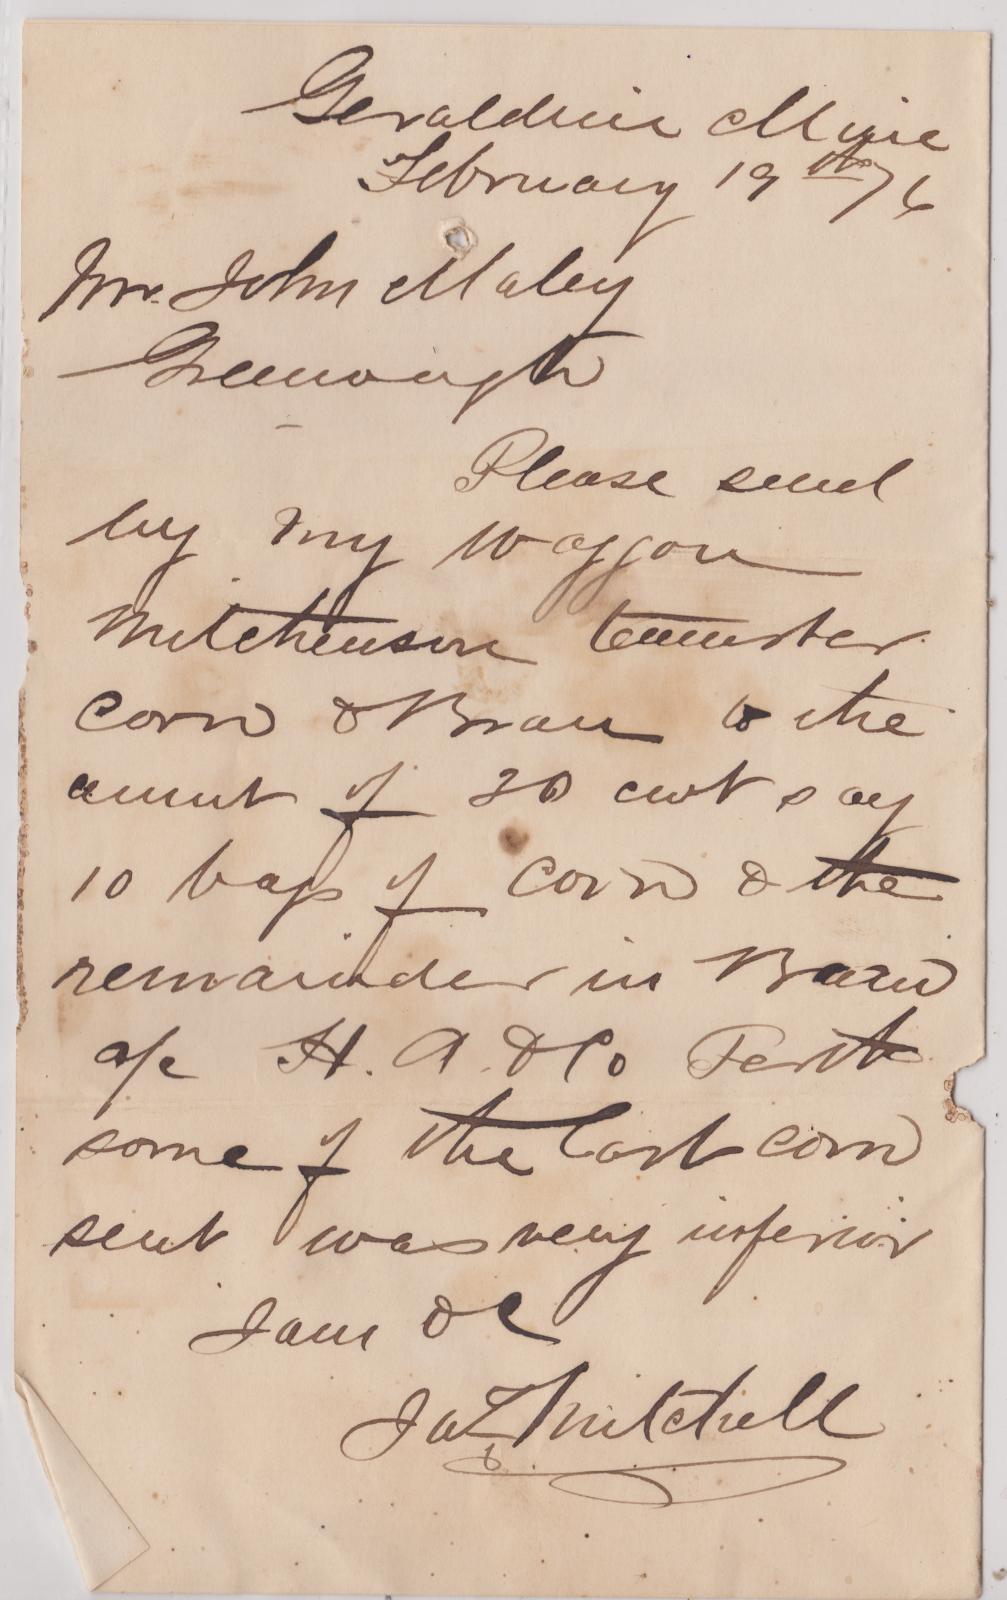 Geraldine Mine
February 19th /76
Mr. John Maley
Greenough
Please send
by my waggon
Mitchenson teamster
corn & Bran to the
amunt of 20 cwt say
10 bags of corn & the
remainder in Bran
a/c H. A. & Co Perth
some of the last corn
sent was very inferior
I am &c
Jas Mitchell